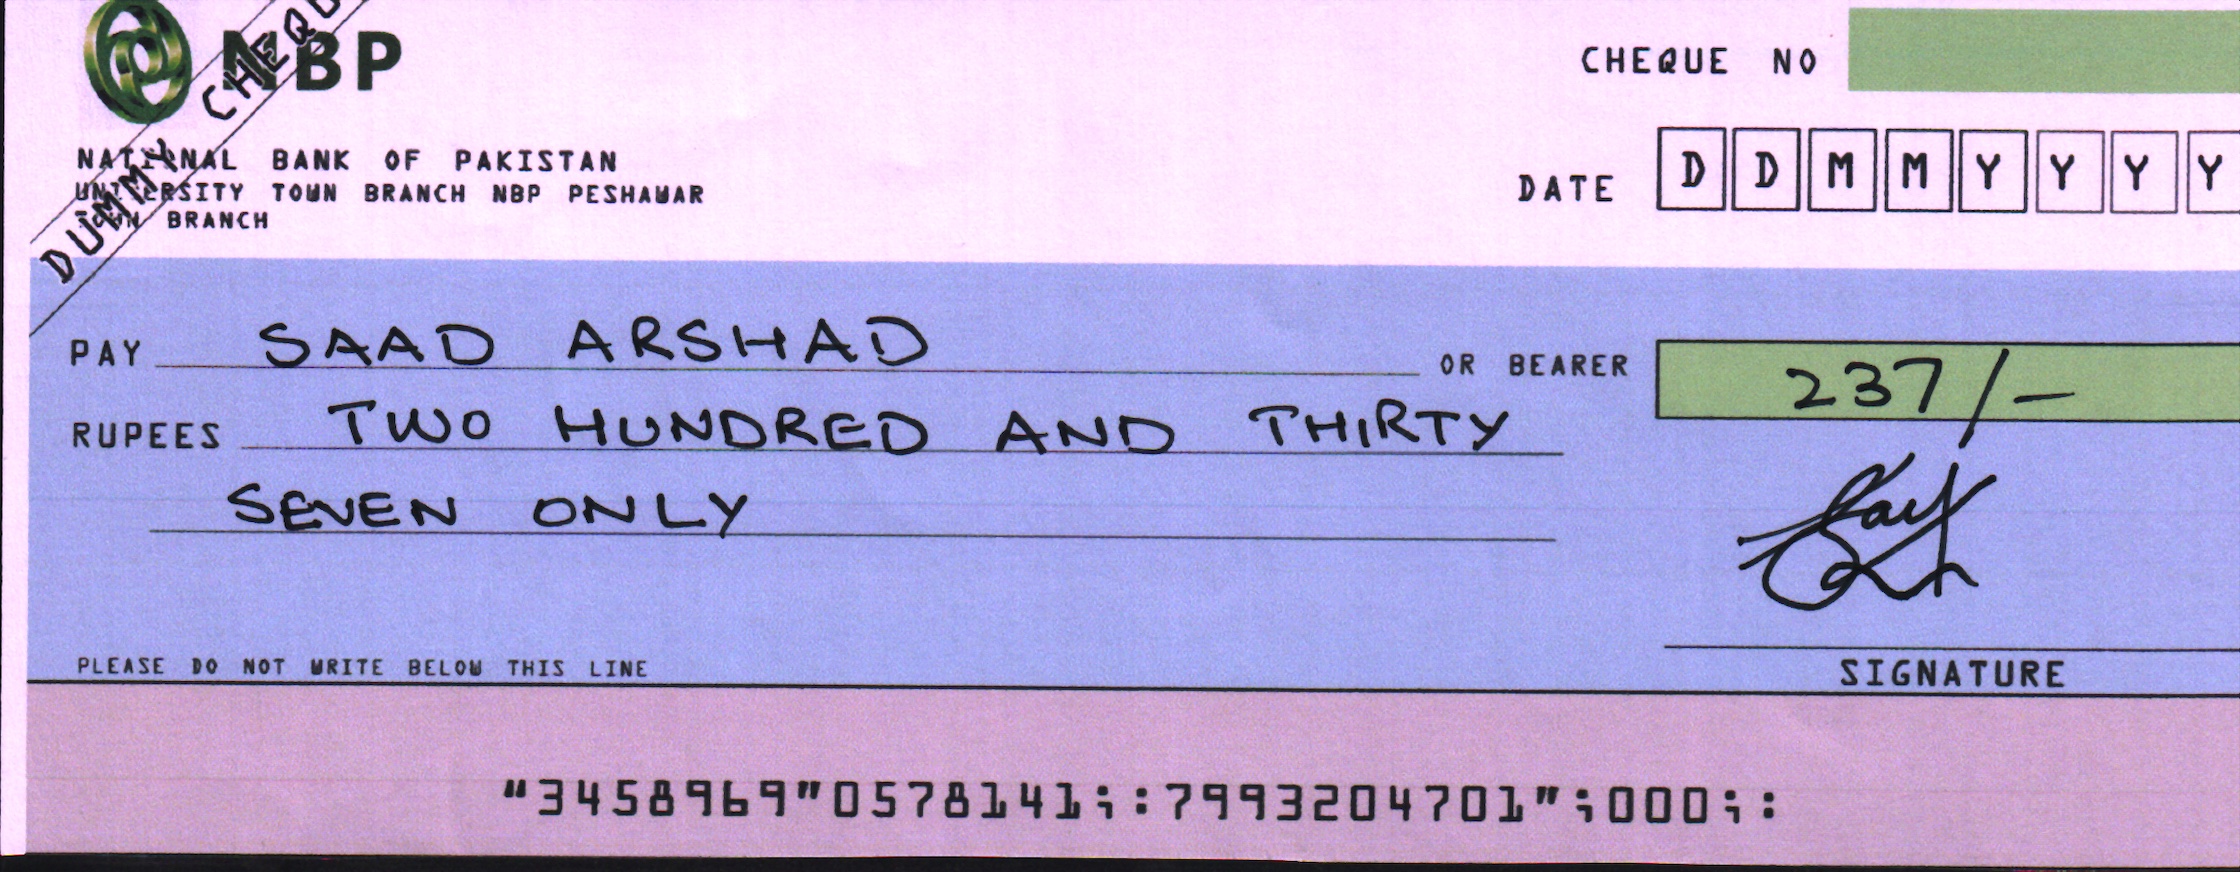 DUMMY CHEQU
NBP
CHEQUE NO
NATIONAL BANK OF PAKISTAN
UNIVERSITY TOWN BRANCH NBP PESHAWAR
TOWN BRANCH
DATE D D M M Y Y Y Y
PAY SAAD ARSHAD OR BEARER 237/-
RUPEES TWO HUNDRED AND THIRTY
SEVEN ONLY
PLEASE DO NOT WRITE BELOW THIS LINE
SIGNATURE
"3458969"0578141;:7993204701";000;: